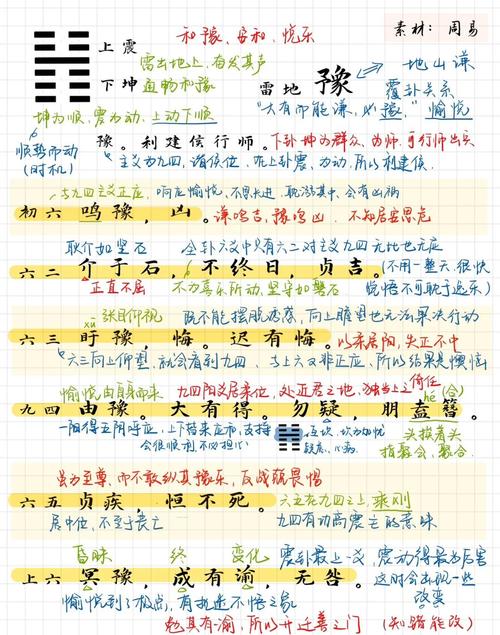 和豫、安和、悦乐
素材：周易
上震
雷出地上，奋发其声
下坤 通畅和豫
雷地 豫
地山谦
覆卦关系
坤为顺，震为动，上动下顺
"大有而能谦，必豫，"愉悦
顺势而动
(时机)
豫。利建侯行师。
下卦坤为群众、为师，可行师出兵
主爻为九四，诸侯位，在上卦震，为动，所以利建侯
与九四主爻正应，响应愉悦，不思长进，耽溺其中，会有凶祸
初六 鸣豫，凶。
谦鸣吉，豫鸣凶 不知居安思危
耿介如坚石
全卦六爻中只有六二对主爻九四无比也无应
六二 介于石，不终日，贞吉。
(不用一整天，很快
正直不屈
不为喜乐所动，坚守如磐石
觉悟不可耽于逸乐)
xū
张目仰视
既不能摆脱诱惑，向上瞻望也无法果决行动
六三 盱豫，悔。迟有悔。
以柔居阳，失正不中
六三向上仰望，就会看到九四，与上六又非正应，所以结果是懊恼
愉悦由自身而来
九四阳爻居柔位，处近君之地，独当上之倚任
hé (合)
九四 由豫。大有得。勿疑，朋盍簪。
一阳得五阴呼应，上下替来应和，支持
会很顺利，不必担心
互坎，坎为加忧
疑虑、心病
头接着头
指聚会、聚合
虽为至尊，而不敢纵其豫乐，反战兢畏惧
六五 贞疾，恒不死。
六五在九四之上，乘刚
居中位，不至于丧亡
九四有功高震主的意味
昏昧 终 变化
震卦最上一爻，震动得最为厉害
上六 冥豫，成有渝，无咎。
这时会出现一些
改变
愉悦到了极点，有执迷不悟之象
勉其有渝，所以开迁善之门
(知错能改)